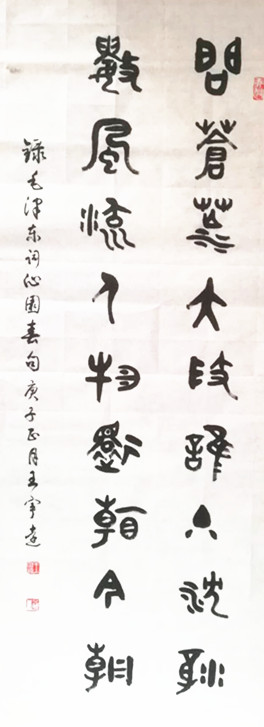 問蒼茫大地誰主沈浮
數風流人物還看今朝
録毛澤东詞沁園春句庚子正月王宇達